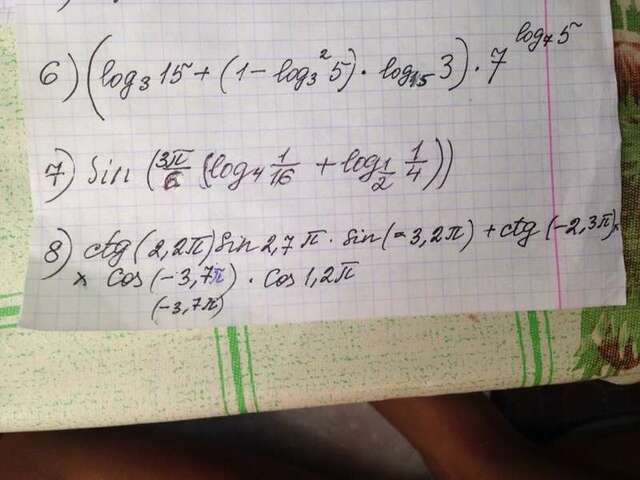 6) (log₃ 15 + (1 - log₃² 5) · log₁₅ 3) · 7^(log₇ 5)
7) Sin (3π/6 (log₄ 1/16 + log_(1/2) 1/4))
8) ctg (2,2π) Sin 2,7π · sin (-3,2π) + ctg (-2,3π) ×
× Cos (-3,7π) · Cos 1,2π
(-3,7π)